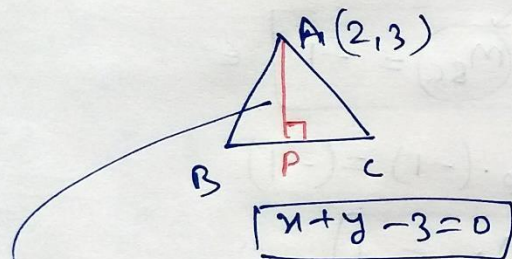 A(2,3)
B P C
x+y-3=0